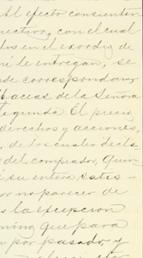 Al efecto consienten
rectivo, con el cual
los en el exordio de
ni le entregan, se
se correspondan y
laceas de la Señora
segunda. El precio
derechos y acciones,
, de los cuales decla
del comprador, Quin
á su entera satis-
or no parecer de
la excepcion
que para
por pasado y